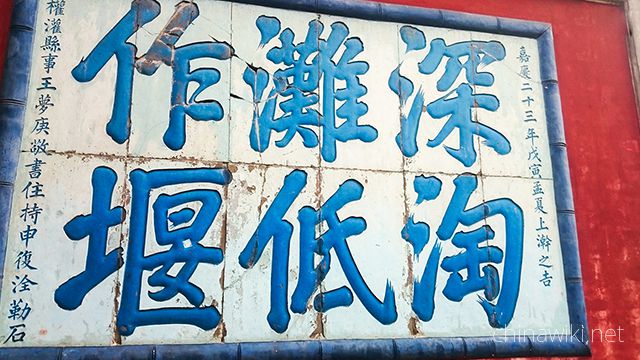 嘉慶二十三年戊寅孟夏上澣之吉
深淘
灘低
作堰
權灌縣事王夢庚敬書住持申復淦勒石
chinawiki.net